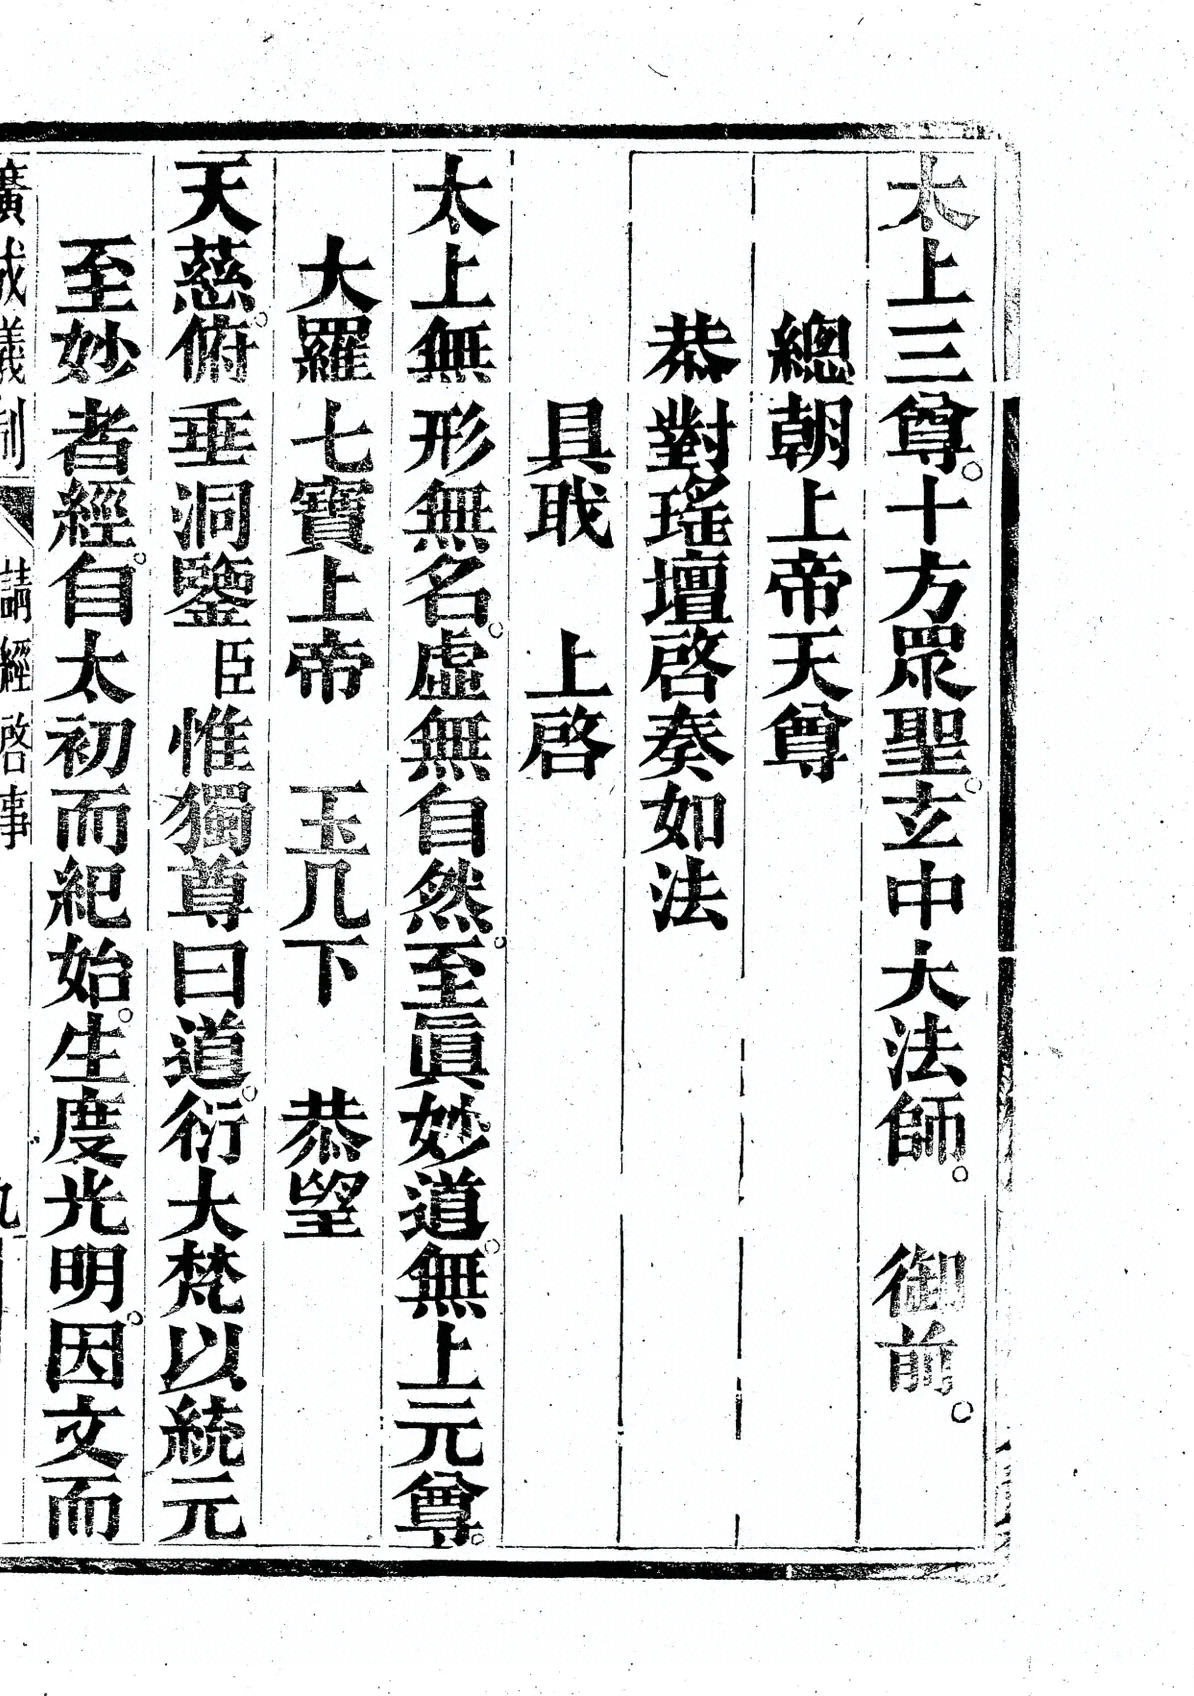 太上三尊。十方眾聖。玄中大法師。 御前。
總朝上帝天尊
恭對瑤壇啓奏如法
具職 上啓
太上無形無名。虛無自然。至眞妙道。無上元尊。
大羅七寶上帝 玉几下 恭望
天慈。俯垂洞鑒臣惟獨尊曰道。衍大梵以統元
至妙者經。自太初而紀始。生度光明。因文而
廣成儀制 請經啓事